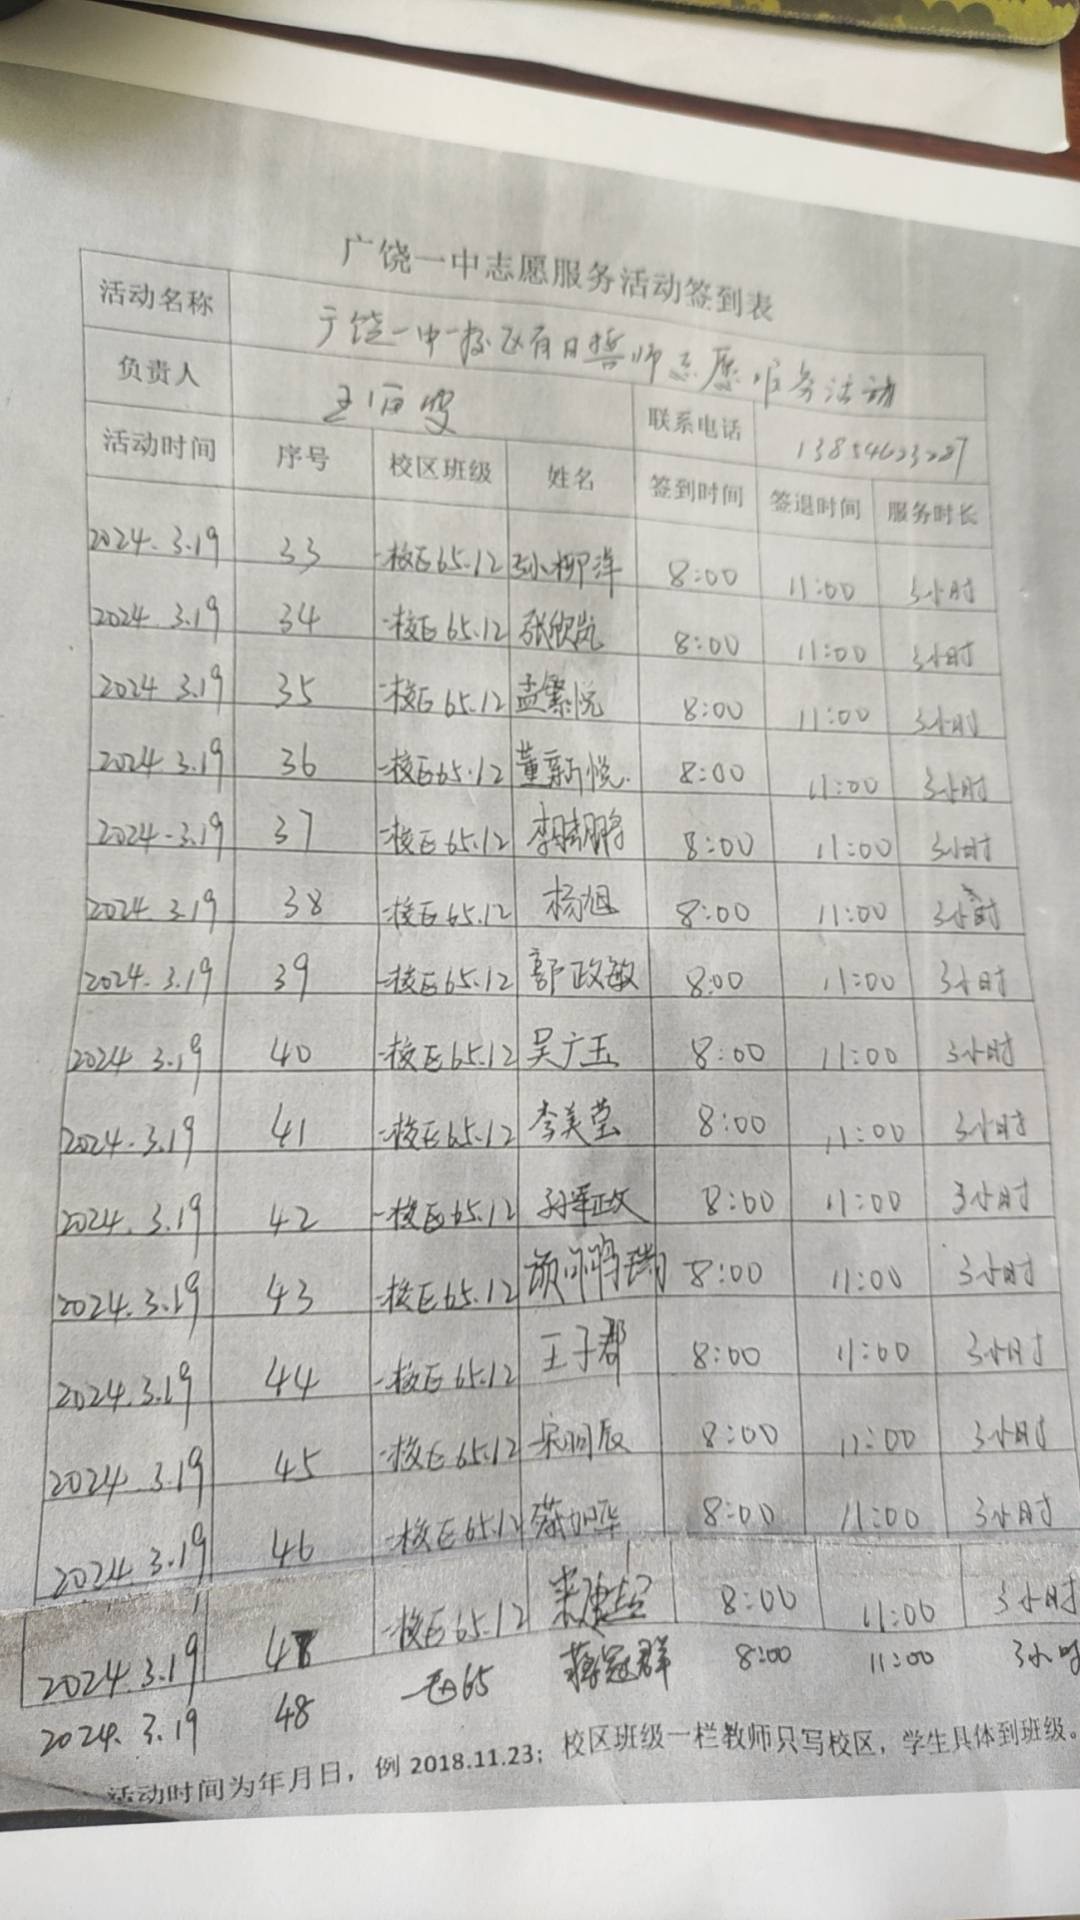 广饶一中志愿服务活动签到表
活动名称 广饶一中一校区百日誓师志愿服务活动
负责人 联系电话
活动时间 序号 校区班级 姓名 签到时间 签退时间 服务时长
2024.3.19 33 一校区65.12 孙柳洋 8:00 11:00 3小时
2024.3.19 34 一校区65.12 张欣岚 8:00 11:00 3小时
2024 3.19 35 一校区65.12 孟繁悦 8:00 11:00 3小时
2024.3.19 36 一校区65.12 董新悦 8:00 11:00 3小时
2024-3.19 37 一校区65.12 8:00 11:00 3小时
2024.3.19 38 一校区65.12 杨旭 8:00 11:00 3小时
2024.3.19 39 一校区65.12 郭政敏 8:00 11:00 3小时
2024.3.19 40 一校区65.12 吴广玉 8:00 11:00 3小时
2024.3.19 41 一校区65.12 李美莹 8:00 11:00 3小时
2024.3.19 42 一校区65.12 8:00 11:00 3小时
2024.3.19 43 一校区65.12 8:00 11:00 3小时
2024.3.19 44 一校区65.12 王子郡 8:00 11:00 3小时
2024.3.19 45 一校区65.12 8:00 11:00 3小时
2024.3.19 46 一校区65.12 8:00 11:00 3小时
2024.3.19 47 一校区65.12 8:00 11:00 3小时
2024.3.19 48 65 蒋冠群 8:00 11:00 3小时
活动时间为年月日，例 2018.11.23；校区班级一栏教师只写校区，学生具体到班级。